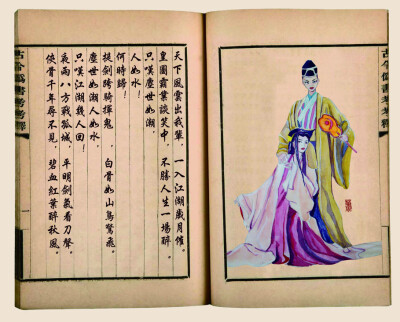 天下風雲出我輩，一入江湖歲月催。
皇圖霸業談笑中，不勝人生一場醉。
只嘆塵世如潮
人如水！
何時歸！
提劍跨騎揮鬼，白骨如山鳥驚飛。
塵世如潮人如水
只嘆江湖幾人回！
哀雨八方戰孤城，平明劍氣看刀聲。
俠骨千年尋不見，碧血紅葉醉秋風。
一